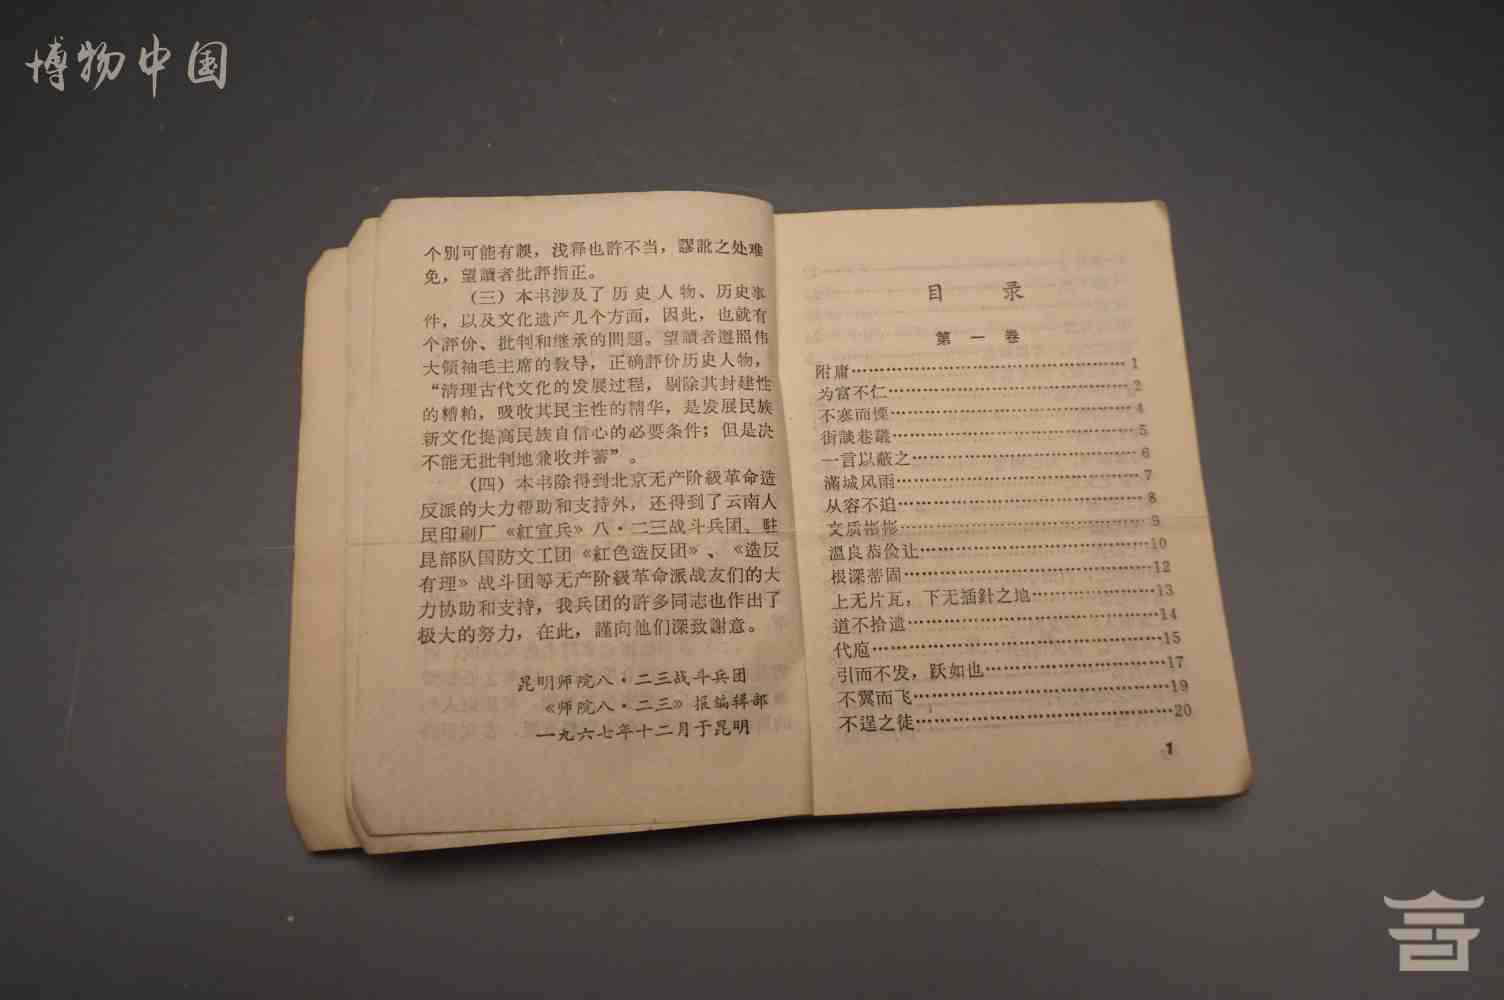 博物中国
个别可能有誤，浅释也許不当，謬訛之处难
免，望讀者批評指正。
（三）本书涉及了历史人物、历史事
件，以及文化遗产几个方面，因此，也就有
个評价、批判和继承的問題。望讀者遵照伟
大領袖毛主席的敎导，正确評价历史人物，
“清理古代文化的发展过程，剔除其封建性
的糟粕，吸收其民主性的精华，是发展民族
新文化提高民族自信心的必要条件；但是决
不能无批判地兼收并蓄”。
（四）本书除得到北京无产阶級革命造
反派的大力帮助和支持外，还得到了云南人
民印刷厂《紅宣兵》八·二三战斗兵团、駐
昆部队国防文工团《紅色造反团》、《造反
有理》战斗团等无产阶級革命派战友们的大
力协助和支持，我兵团的許多同志也作出了
极大的努力，在此，謹向他们深致謝意。
昆明师院八·二三战斗兵团
《师院八·二三》报编辑部
一九六七年十二月于昆明
目 录
第一卷
附庸……1
为富不仁……2
不寒而慄……4
街談巷議……5
一言以蔽之……6
滿城风雨……7
从容不迫……8
文质彬彬……9
溫良恭俭让……10
根深蒂固……12
上无片瓦，下无插針之地……13
道不拾遗……14
代庖……15
引而不发，跃如也……17
不翼而飞……19
不逞之徒……20
1